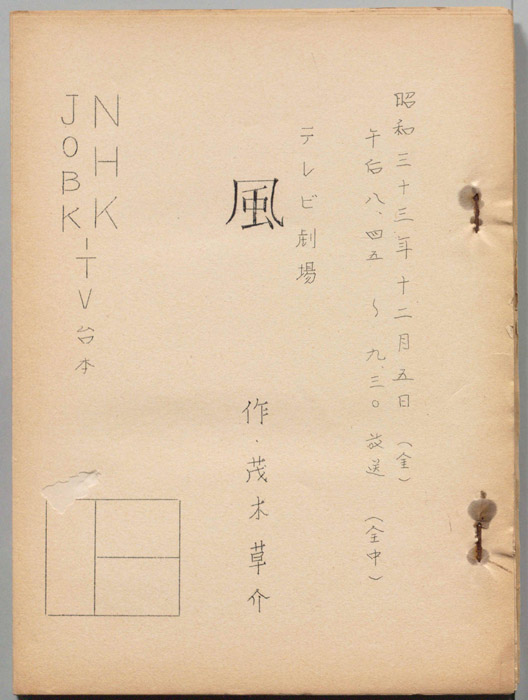 昭和三十三年十二月五日（金）
午后八、四五～九、三〇放送（全中）
テレビ劇場
風
作・茂木草介
NHK
JOBK-TV台本